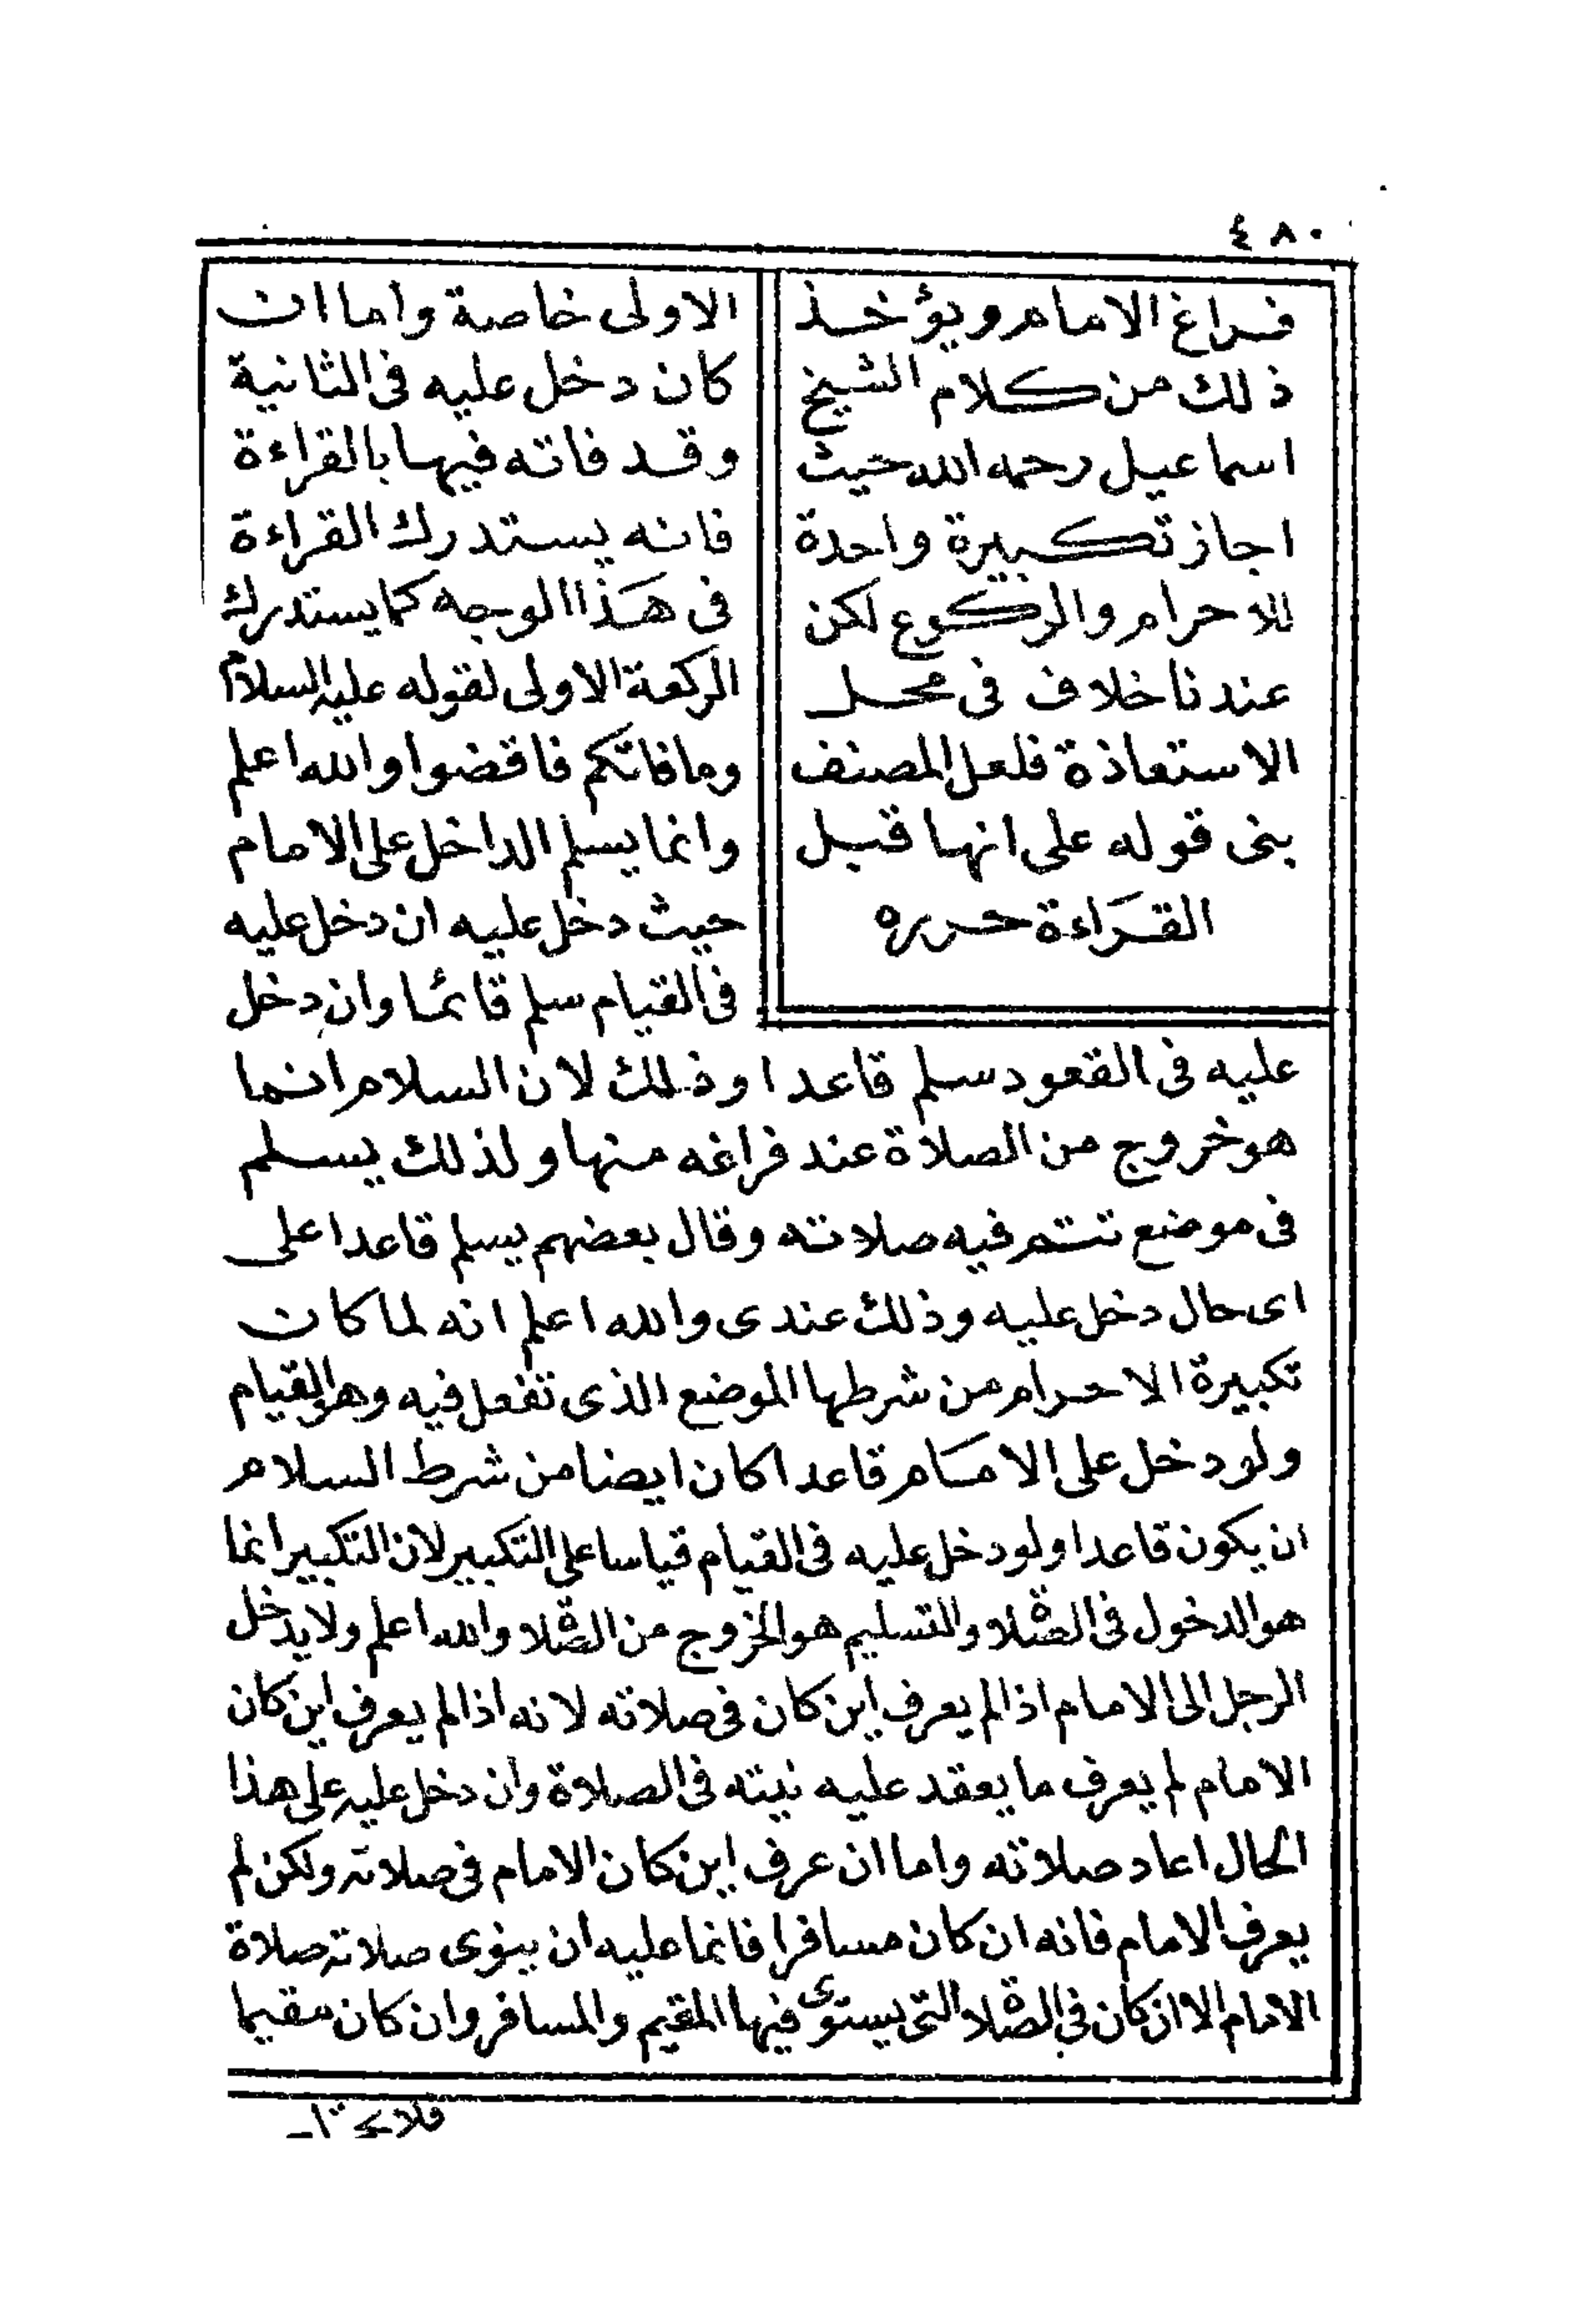 ٤٨٠
فراغ الامام ويؤخذ
ذلك من كلام الشيخ
اسماعيل رحمه الله حيث
اجاز تكبيرة واحدة
للاحرام والركوع لكن
عندنا خلاف فى محل
الاستعاذة فلعل المصنف
بنى قوله على انها قبل
القراءة حرره
الاولى خاصة واما ان
كان دخل عليه فى الثانية
وقد فاته فيها بالقراءة
فانه يستدرك القراءة
فى هذا الوجه كما يستدرك
الركعة الاولى لقوله عليه السلام
وما فاتكم فاقضوا والله اعلم
وانما يسلم الداخل على الامام
حيث دخل عليه ان دخل عليه
فى القيام سلم قائما وان دخل
عليه فى القعود سلم قاعدا وذلك لان السلام انما
هو خروج من الصلاة عند فراغه منها ولذلك يسلم
فى موضع تتم فيه صلاته وقال بعضهم يسلم قاعدا على
اى حال دخل عليه وذلك عندى والله اعلم انه لما كان
تكبيرة الاحرام من شرطها الموضع الذى تفعل فيه وهو القيام
ولو دخل على الامام قاعدا كان ايضا من شرط السلام
ان يكون قاعدا ولو دخل عليه فى القيام قياسا على التكبير لان التكبير انما
هو الدخول فى الصلاة والتسليم هو الخروج من الصلاة والله اعلم ولا يدخل
الرجل الى الامام اذا لم يعرف اين كان فى صلاته لانه اذا لم يعرف اين كان
الامام لم يعرف ما يعقد عليه نيته فى الصلاة وان دخل عليه على هذا
الحال اعاد صلاته واما ان عرف اين كان الامام فى صلاته ولكن لم
يعرف الامام فانه ان كان مسافرا فانما عليه ان ينوى صلاته صلاة
الامام الا ان كان فى الصلاة التى يستوى فيها المقيم والمسافر وان كان مقيما